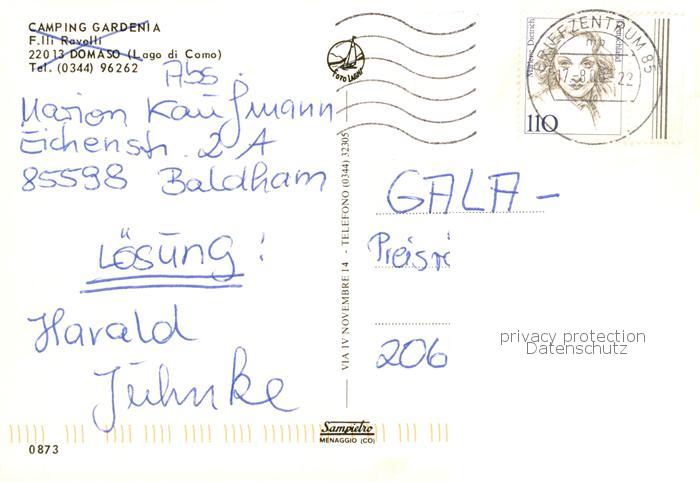 CAMPING GARDENIA
F.lli Ravelli
22013 DOMASO (Lago di Como)
Tel. (0344) 96262
Abs.
Marion Kaufmann
Eichenstr. 2 A
85598 Baldham
LÖSUNG!
Harald
Juhnke
0873
FOTO LAGHI
VIA IV NOVEMBRE 14 - TELEFONO (0344) 32305
Sampietro
MENAGGIO (CO)
Marlene Dietrich
Deutschland
110
BRIEFZENTRUM 85
mp
-22
GALA-
Preisr
206
privacy protection
Datenschutz